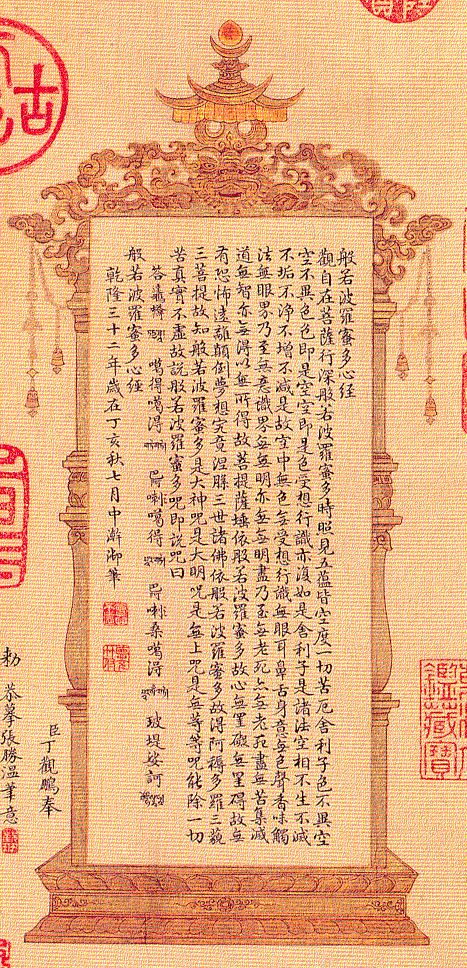 般若波羅蜜多心經
觀自在菩薩行深般若波羅蜜多時照見五蘊皆空度一切苦厄舍利子色不異空
空不異色色即是空空即是色受想行識亦復如是舍利子是諸法空相不生不滅
不垢不淨不增不減是故空中無色無受想行識無眼耳鼻舌身意無色聲香味觸
法無眼界乃至無意識界無無明亦無無明盡乃至無老死亦無老死盡無苦集滅
道無智亦無得以無所得故菩提薩埵依般若波羅蜜多故心無罣礙無罣礙故無
有恐怖遠離顛倒夢想究竟涅槃三世諸佛依般若波羅蜜多故得阿耨多羅三藐
三菩提故知般若波羅蜜多是大神咒是大明咒是無上咒是無等等咒能除一切
苦真實不虛故說般若波羅蜜多咒即說咒曰
噶得噶得 噶得 桑噶得 玻提娑訶
般若波羅蜜多心經
乾隆三十二年歲在丁亥秋七月中澣御筆
臣丁觀鵬奉
勅恭摹張勝溫筆意
古
鑑藏寶